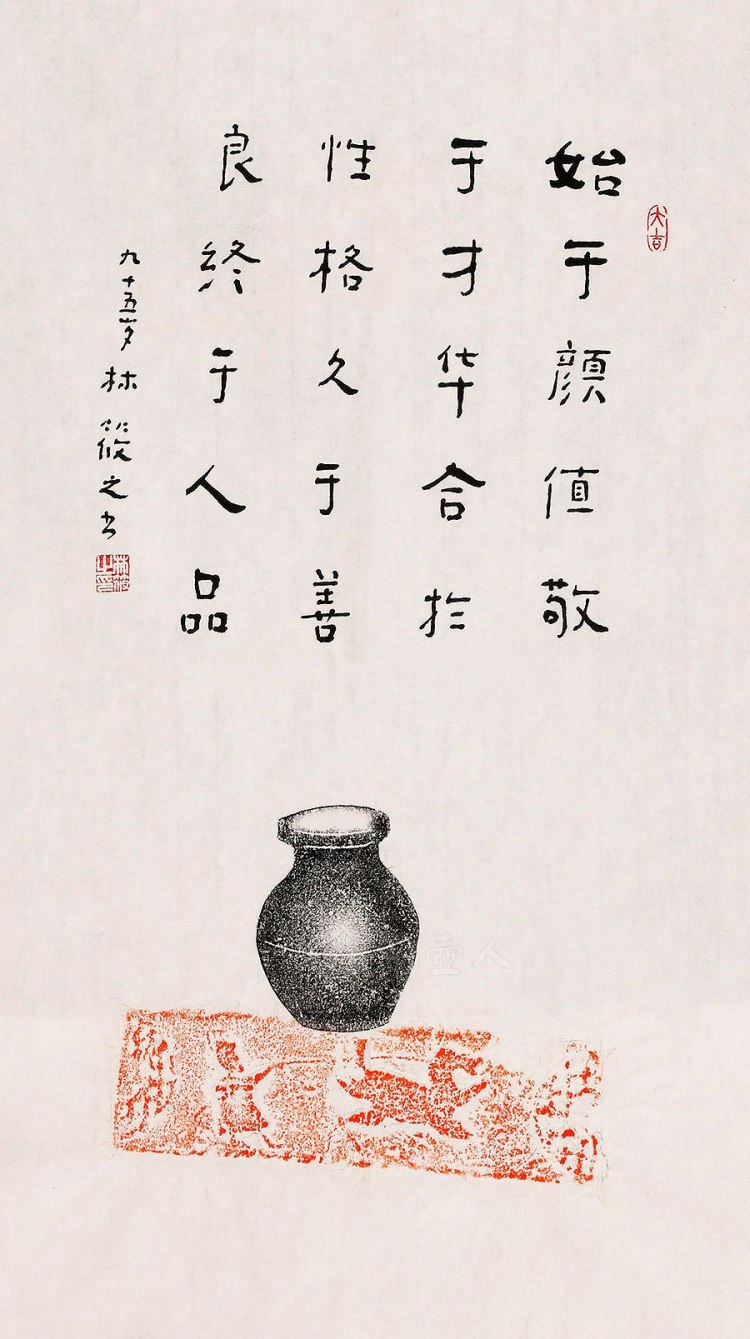 大吉
始于顔值敬
于才华合扵
性格久于善
良終于人品
九十五岁林筱之书
林筱之印
壶人